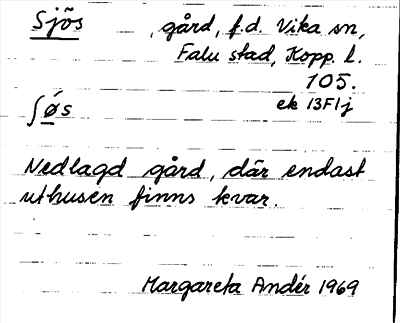 Sjös , gård, f.d. Vika sn,
Falu stad, Kopp. l.
105.
ʃøs ek 13F1j
Nedlagd gård, där endast
uthusen finns kvar.
Margareta Andér 1969